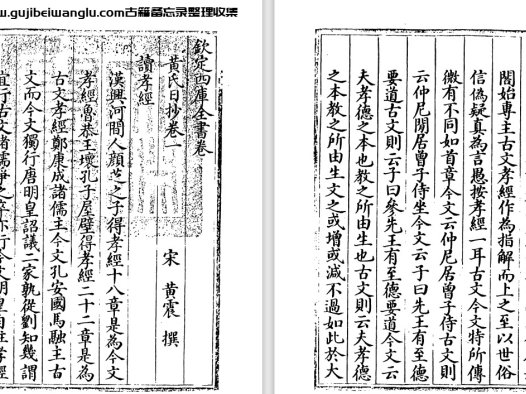 w.gujibeiwanglu.com古籍备忘录整理收集
欽定四庫全書卷
黄氏日抄卷一
宋 黄震 撰
讀孝經
漢興河間人顔芝之子得孝經十八章是為今文
孝經魯恭王壞孔子屋壁得孝經二十二章是為
古文孝經鄭康成諸儒主今文孔安國馬融主古
文而今文獨行唐明皇詔議二家孰從劉知幾謂
宜行古文諸儒爭之卒亦行今文明皇自註孝經
閣始專主古文孝經作為指解而上之至以世俗
信偽疑真為言愚按孝經一耳古文今文特所傳
微有不同如首章今文云仲尼居曾子侍古文則
云仲尼閒居曾子侍坐今文云子曰先王有至德
要道古文則云子曰參先王有至德要道今文云
夫孝德之本也教之所由生也古文則云夫孝德
之本教之所由生文之或增或減不過如此於大